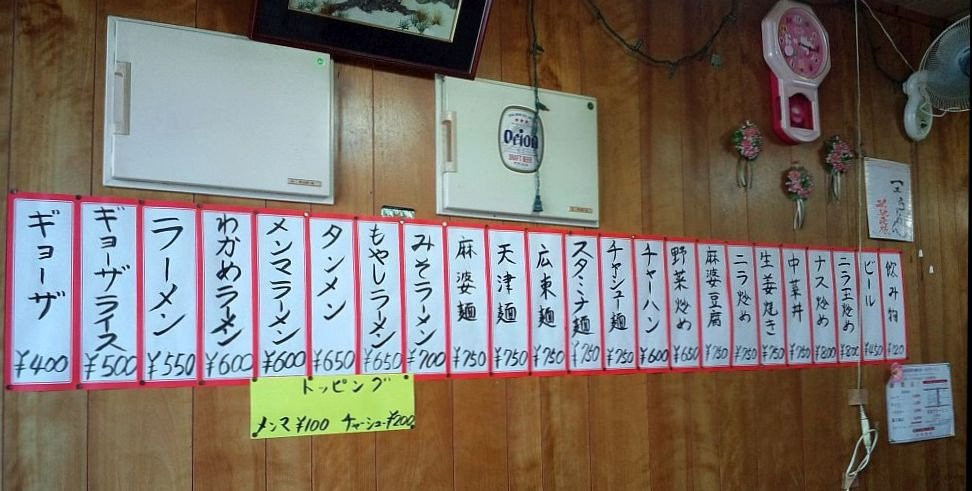 ギョーザ ¥400
ギョーザライス ¥500
ラーメン ¥550
わかめラーメン ¥600
メンマラーメン ¥600
タンメン ¥650
もやしラーメン ¥650
みそラーメン ¥700
麻婆麺 ¥750
天津麺 ¥750
広東麺 ¥750
スタミナ麺 ¥750
チャーシュー麺 ¥750
チャーハン ¥600
野菜炒め ¥650
麻婆豆腐 ¥750
ニラ炒め ¥750
生姜焼き ¥750
中華丼 ¥750
ナス炒め ¥800
ニラ玉炒め ¥800
ビール ¥450
飲み物 ¥120
トッピング
メンマ ¥100 チャーシュー ¥200
Orion
DRAFT BEER